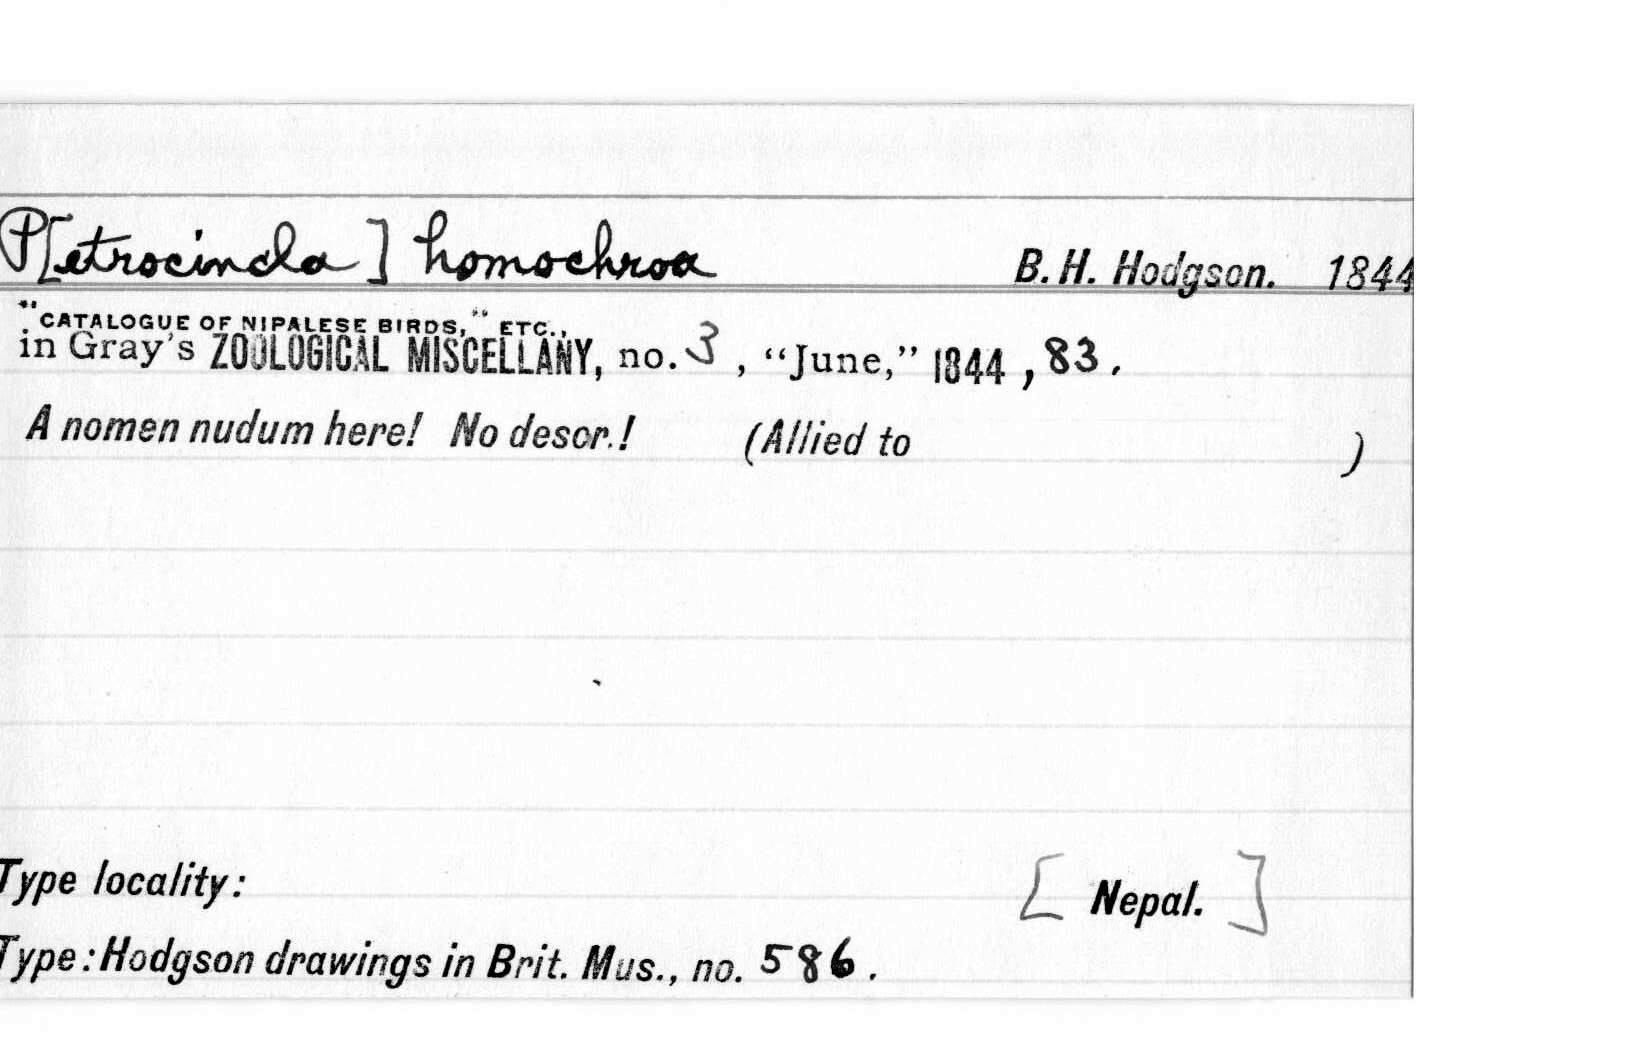 P[etrocincla] homochroa B. H. Hodgson. 1844
"CATALOGUE OF NIPALESE BIRDS," ETC.,
in Gray's ZOOLOGICAL MISCELLANY, no. 3, "June," 1844, 83.
A nomen nudum here! No descr.! (Allied to )
Type locality: [Nepal.]
Type: Hodgson drawings in Brit. Mus., no. 586.